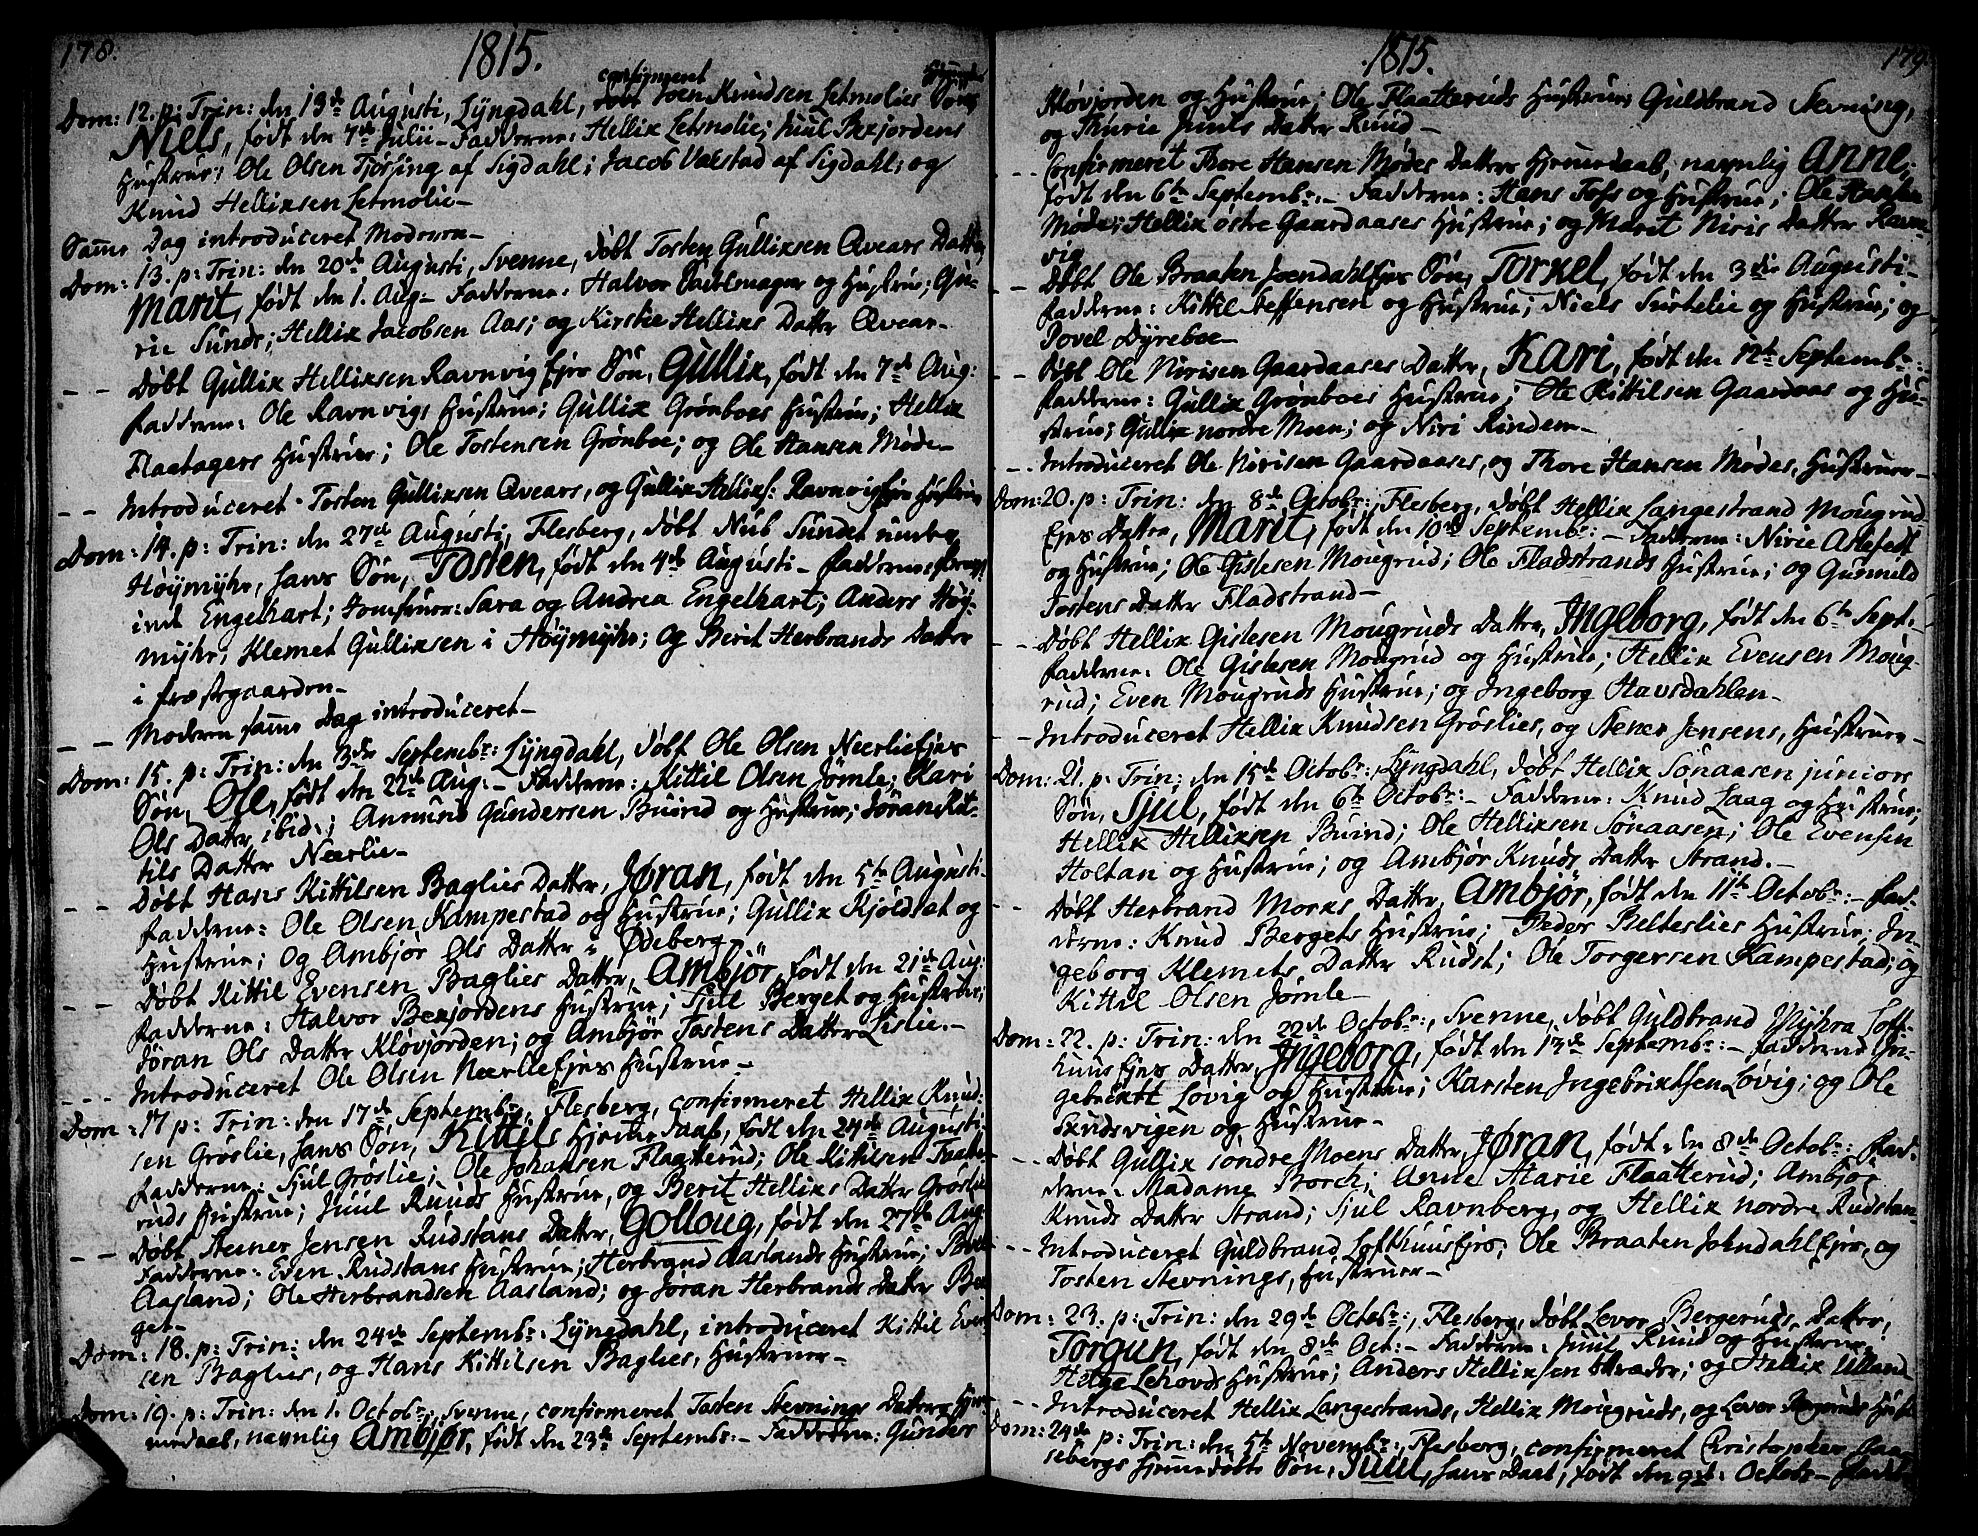 178.
1815.
confirmeret
Dom: 12. p: Trin: den 13de Augusti, Lÿngdahl, Joen Knudsen Letmolies Søn
Niels, født den 7de Julii - Fadderne: Hellik Letmolie; Juul Bexjordens
Hustrue; Ole Olsen Tforsing af Sigdahl; Jacob Vatstad af Sigdahl; og
Knud Helliksen Letmolie -
Samme Dag introduceret Moderen -
Dom: 13. p: Trin: den 20de Augusti, Svenne, døbt Tosten Gulliksen Qvears Datter,
Marit, født den 1. Aug - Fadderne: Halvor og Hustrue; Gu-
rie Sunds; Hellik Jacobsen Aas; og Kirstie Helliks Datter Qvear -
- - Døbt Gullik Helliksen Ravnvig Ejes Søn, Gullik, født den 7de Aug:
Fadderne: Ole Ravnvigs Hustrue; Gullik Grönboes Hustrue; Hellik
Flaatagers Hustrue; Ole Tostensen Grönboe; og Ole Hansen Møde -
- - Introduceret Tosten Gulliksen Qvears, og Gullik Helliks: Ravnvigejes Hustruer
Dom: 14. p: Trin: den 27de Augusti, Flesberg, døbt Nub Sundet under
Höÿmÿhr, hans Søn, Tosten, født den 4de Augusti - Fadderne:
inde Engelhart; Jomfruer: Sara og Andrea Engelhart; Anders Höÿ-
mÿhr; Klemet Gulliksen i Höÿmÿhr; og Berit Herbrands Datter
i Præstegaarden -
- - Moderen samme Dag introduceret -
Dom: 15. p: Trin: den 3de Septembr: Lÿngdahl, døbt Ole Olsen Neerliejes
Søn, Ole, født den 22de Aug: - Fadderne: Kittil Olsen Jømle; Kari
Ols Datter ibid:; Anmund Gundersen Buind og Hustrue; Jøran Kit-
tils Datter Neerlie -
- - Døbt Hans Kittilsen Baglies Datter, Jøran, født den 5te Augusti -
Fadderne: Ole Olsen Kampestad og Hustrue; Gullik Kjöldsat og
Hustrue; og Ambjør Ols Datter i Ødeberg -
- - Døbt Kittil Evensen Baglies Datter, Ambjör, født den 21de Aug:
Fadderne: Halvor Bexjordens Hustrue; Sjul Berget og Hustrue;
Jöran Ols Datter Kløvjorden; og Ambjør Tostens Datter Lislie. -
- - - Introduceret Ole Olsen Neerliejes Hustrue -
Dom: 17 p: Trin: den 17de Septembr: Flesberg, confirmeret Hellik Knud-
sen Grøslie, hans Søn, Kittils Hjemedaab, født den 24de Augusti:
Fadderne: Sjul Grøslie; Ole Johansen Flaatterud; Ole Kittilsen Flaatte-
ruds Hustrue; Juul Ruuds Hustrue, og Berit Helliks Datter Grøslie
- - Døbt Stener Jensen Rudstans Datter, Golloug, født den 27de Aug
Fadderne: Even Rudstans Hustrue; Herbrand Aaslands Hustrue;
Aasland; Ole Herbrandsen Aasland; og Jøran Herbrands Datter Ber-
get -
Dom: 18. p: Trin: den 24de Septembr: Lÿngdahl, introduceret Kittil Even
sen Baglies, og Hans Kittilsen Baglies, Hustruer -
Dom: 19. p: Trin: den 1. Octobr:, Svenne, confirmeret Tosten Stevnings Datters Hjem-
medaab, navnlig Ambjør, født den 23de Septembr: - Fadderne: Gunder
1815.
179
Kløvjorden og Hustrue; Ole Flaatteruds Hustrue; Guldbrand Stevning,
og Thurie Juuls Datter Ruud -
- - Confirmeret Thore Hansen Mødes Datters Hjemedaab, navnlig Anne;
født den 6te Septembr: - Fadderne: Hans Tofs og Hustrue; Ole Hansen
Møde; Hellik østre Gaardaases Hustrue; og Marit Niris Datter Ravn-
vig
- - Døbt Ole Braaten Joendahlejes Søn, Torkel, født den 3die Augusti -
Fadderne: Kittil Steffensen og Hustrue; Niels Surtelie og Hustrue; og
Povel Dÿreboe -
- - Døbt Ole Nirisen Gaardaases Datter, Kari, født den 12te Septembr:
Fadderne: Gullik Grönboes Hustrue; Ole Kittilsen Gaardaas og Hu-
strue; Gullik nordre Moen; og Niri Rindem -
- - Introduceret Ole Nirisen Gaardaases, og Thore Hansen Mødes, Hustruer -
Dom: 20. p: Trin: den 8de Octobr:, Flesberg, døbt Hellik Langestrand Mougrud
Ejes Datter, Marit, født den 10de Septembr: - Fadderne: Nirie Aslefett
og Hustrue; Ole Gislesen Mougrud; Ole Fladstrands Hustrue; og Gunnild
Tostens Datter Fladstrand -
- - Døbt Hellik Gislesen Mougruds Datter, Ingeborg, født den 6te Sept: -
Fadderne: Ole Gislesen Mougrud og Hustrue; Hellik Evensen Moug-
rud; Even Mougruds Hustrue; og Ingeborg Havsdahlen -
- - Introduceret Hellik Knudsen Gröslies, og Stener Jensens, Hustruer -
Dom: 21. p: Trin: den 15de Octobr:, Lÿngdahl, døbt Hellik Sønaasen juniors
Søn, Sjul, født den 6te Octobr: - Fadderne: Knud Laag og Hustrue;
Hellik Helliksen Buind; Ole Helliksen Sønaasen; Ole Evensen
Holtan og Hustrue; og Ambjør Knuds Datter Strand. -
- - Døbt Herbrand Morks Datter, Ambjör, født den 11te Octobr: - Fad-
derne: Knud Bergets Hustrue; Peder Belteslies Hustrue; In-
geborg Klemets Datter Rudst; Ole Torgersen Kampestad; og
Kittil Olsen Jømle -
Dom: 22. p: Trin: den 22de Octobr:, Svenne, døbt Guldbrand Mÿhra Loft-
huusejes Datter, Ingeborg, født den 13de Septembr: - Fadderne: In-
gebrikt Løvig og Hustrue; Karsten Ingebriktsen Lövig; og Ole
Skudsvigen og Hustrue -
- - Døbt Gullik söndre Moens Datter, Jøran, født den 8de Octobr: Fad-
derne: Madame Borch; Anne Marie Flaatterud; Ambjør
Knuds Datter Strand; Sjul Ravnberg, og Hellik nordre Rudstan -
- - Introduceret Guldbrand Lofthuusejes, Ole Braaten Johndahlejes, og
Tosten Stevnings, Hustruer -
Dom: 23. p: Trin: den 29de Octobr:, Flesberg, døbt Levor Bergeruds Datter,
Torgun, født den 8de Oct: - Fadderne: Juul Ruud og Hustrue;
Helge Lehovds Hustrue; Anders Helliksen Skræder; og Hellik Ulland
- - Introduceret Hellik Langestrands, Hellik Mougruds, og Levor Bergeruds Hust
Dom: 24de p: Trin: den 5te Novembr:, Flesberg, confirmeret Christopher Aar
sebergs Hjemedøbte Søn, Juul, hans Daab, født den 9de Octobr - Fadde